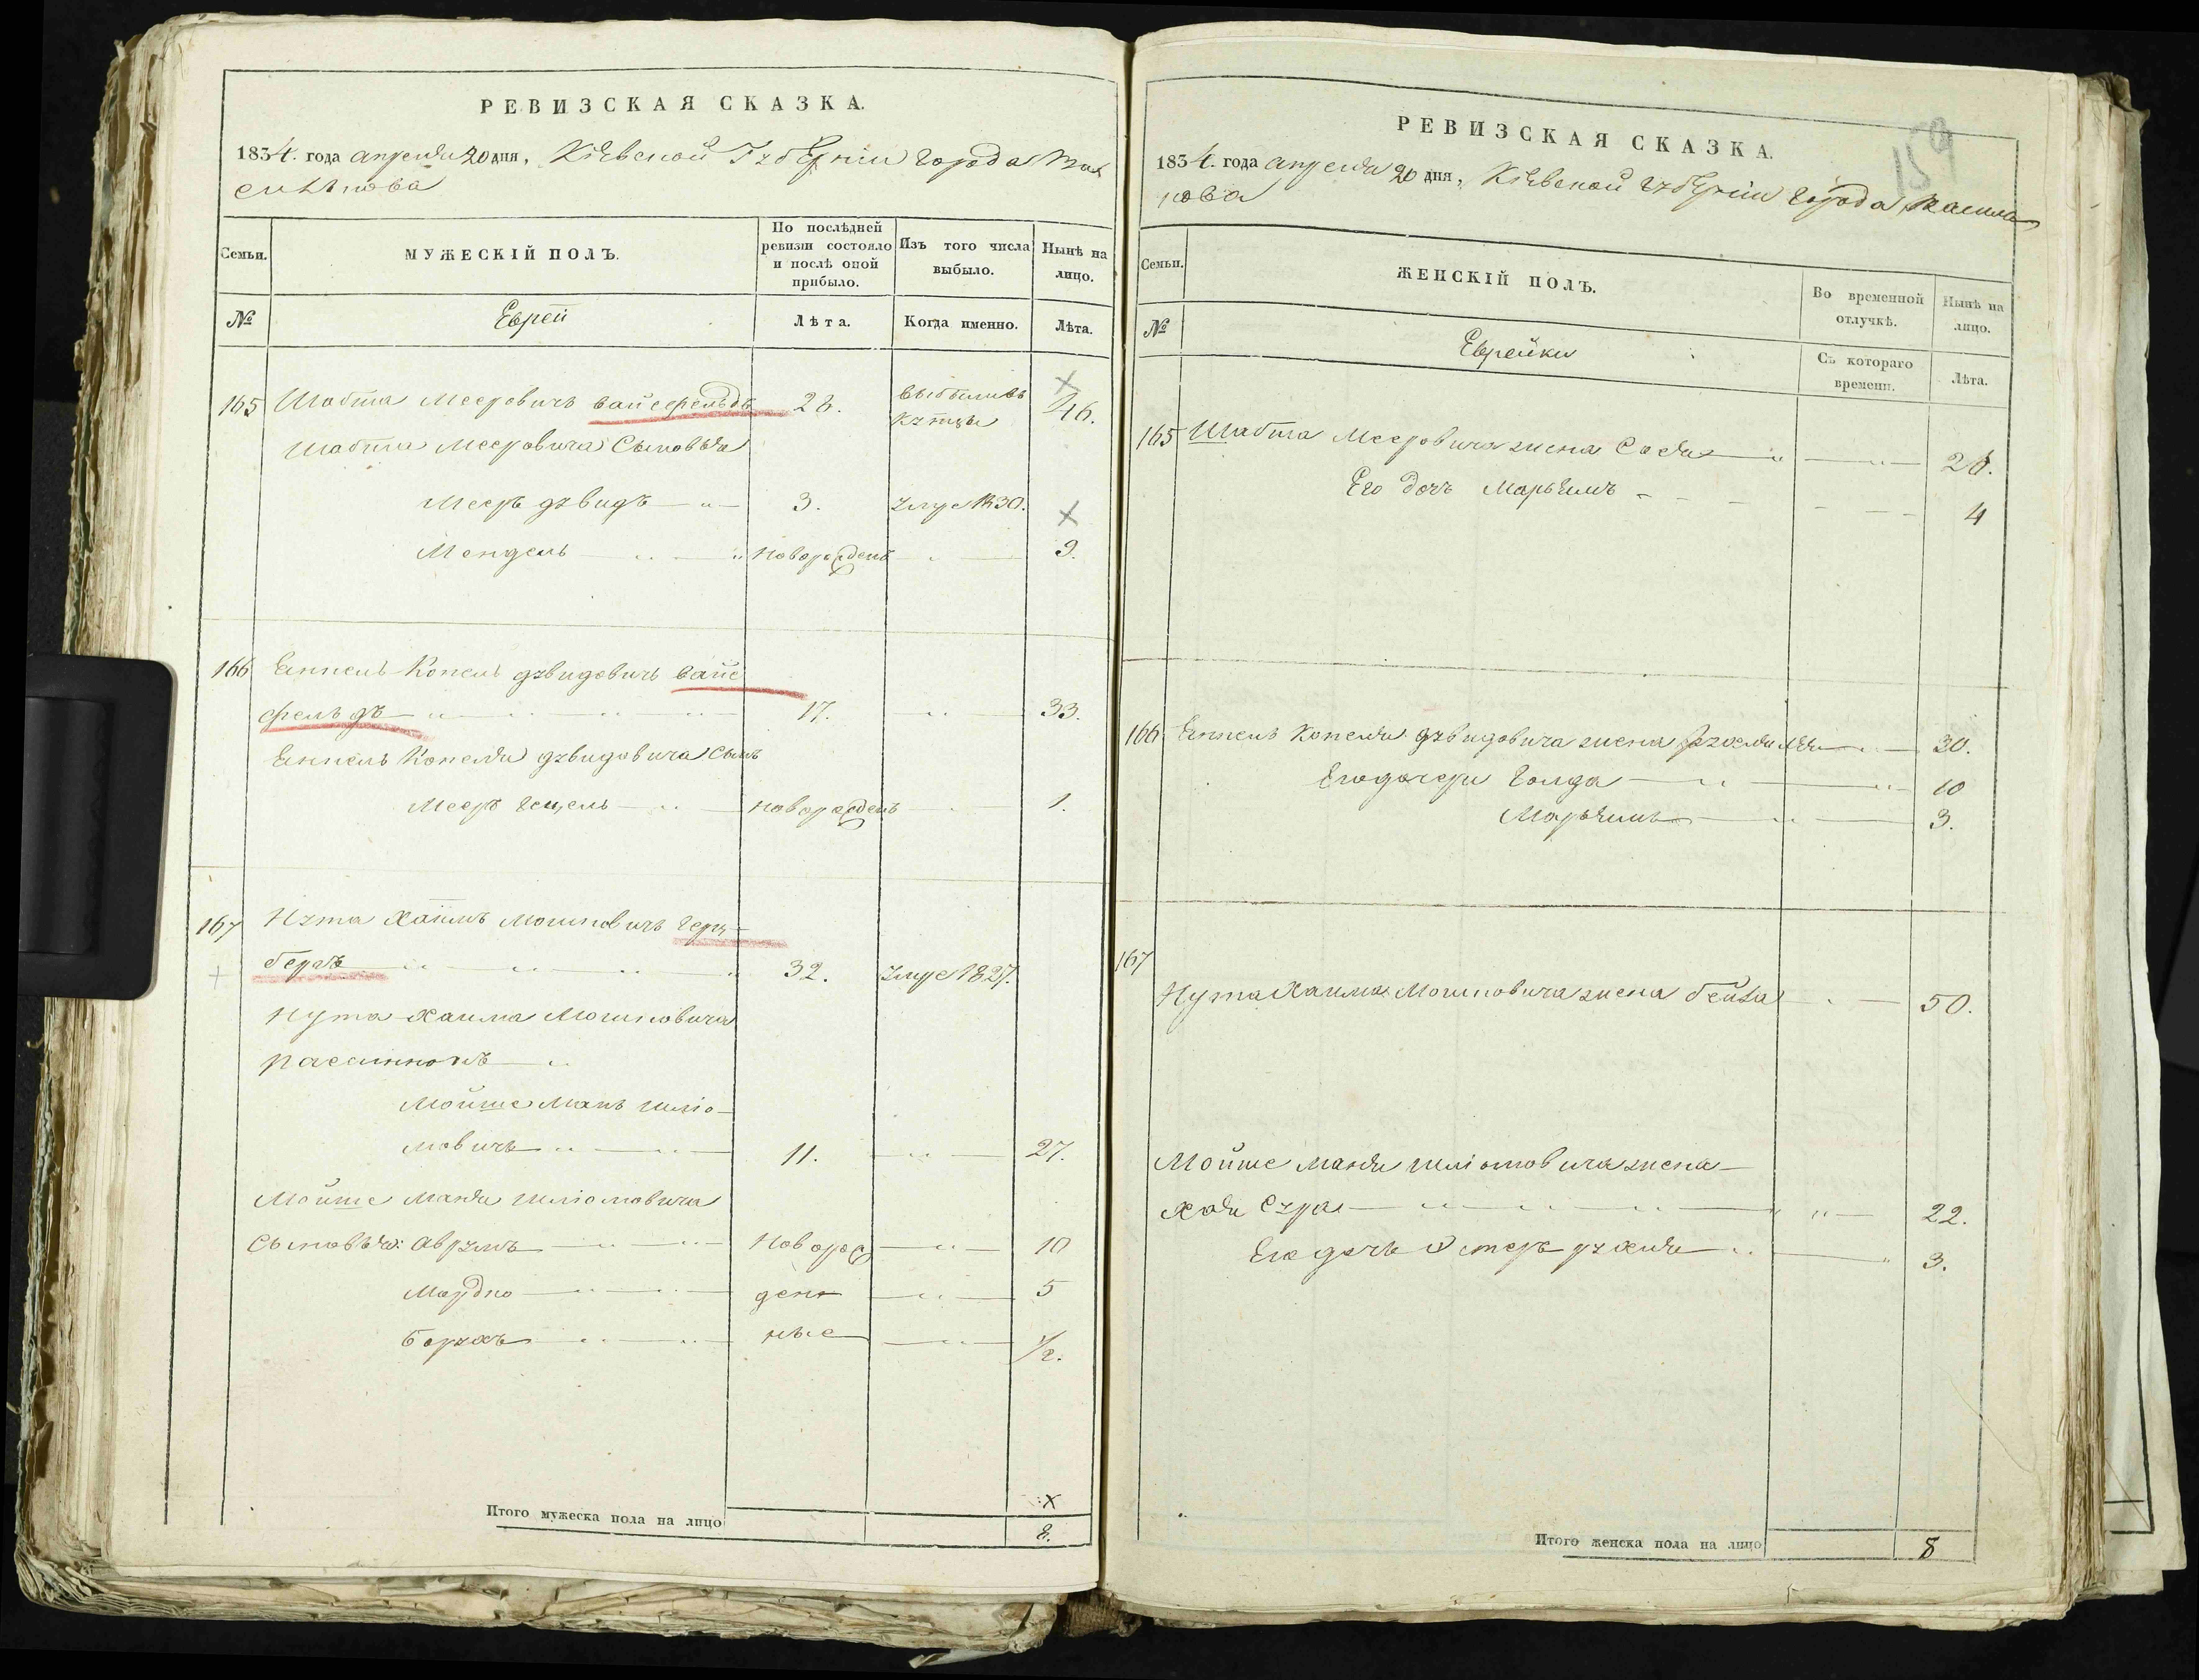 РЕВИЗСКАЯ СКАЗКА.
1834. года апреля 20 дня, Кіевской Губерніи города Ва
силькова
Семьи.
МУЖЕСКІЙ ПОЛЪ.
По послѣдней ревизіи состояло и послѣ оной прибыло.
Изъ того числа выбыло.
Нынѣ на лицо.
№
Еврей
Лѣта.
Когда именно.
Лѣта.
165 Шабта Мееровичъ вайсфельдъ 28. выбылъ въ купцы 46.
Шабта Мееровича Сыновья
Мееръ дувидъ 3. умре 1830.
Мендель новорожденъ 9.
166 Копель дувидовичъ вайс
фельдъ 17. 33.
Копеля дувидовича Сынъ
Мееръ новорожденъ 1.
167 Нута Хаимъ Мошковичъ герш
бергъ 32. умре 1827.
Нута Хаима Мошковича
Мойше Шліо
мовичъ 11. 27.
Мойше Шліомовича
Сыновья: Аврумъ новорож 10
Мордко ден 5
Борухъ ные 1/2.
Итого мужеска пола на лицо 8.
159
РЕВИЗСКАЯ СКАЗКА.
1834. года апреля 20 дня, Кіевской губерніи города Василь
кова
Семьи.
ЖЕНСКІЙ ПОЛЪ.
Во временной отлучкѣ.
Нынѣ на лицо.
№
Еврейки
Съ котораго времени.
Лѣта.
165 Шабта Мееровича жена Сося 28.
Его дочь Марьямъ 4
166 Копеля дувидовича жена 30.
Его дочери Голда 10
Марьямъ 3.
167
Нута Хаима Мошковича жена бейла 50.
Мойше Шліомовича жена
Хая Сура 22.
Его дочь Эстеръ рухля 3.
Итого женска пола на лицо 8